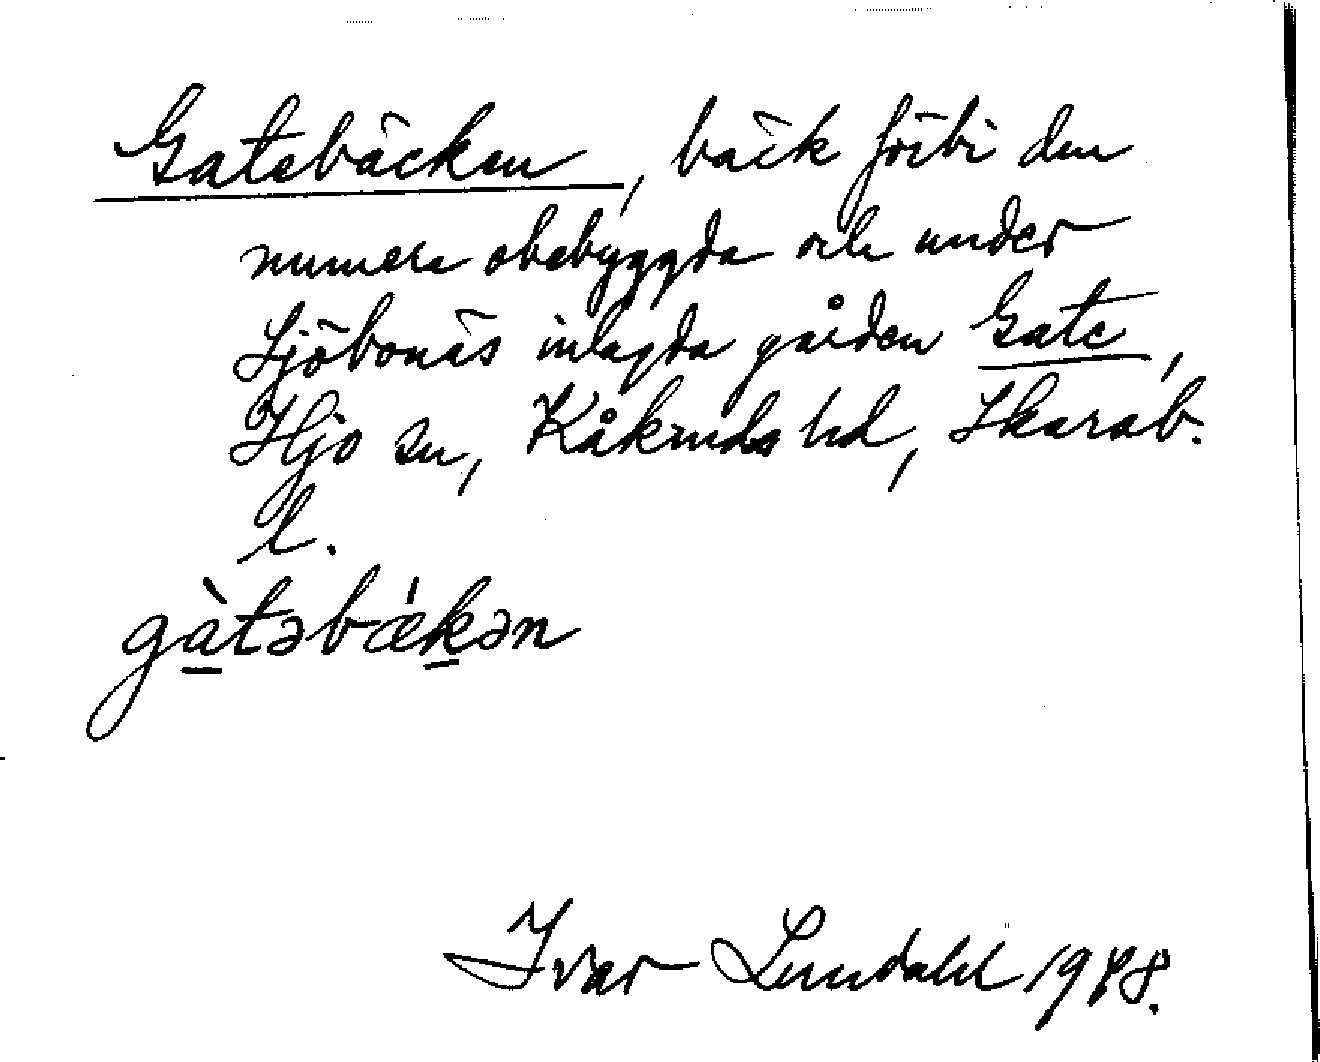 Gatebäcken, bäck förbi den
numera obebyggda och under
Sjöbonäs inlagda gården Gate,
Hjo sn, Kåkinds hd, Skarab.
l.
gàtəbǽkən
Ivar Lundahl 1948.